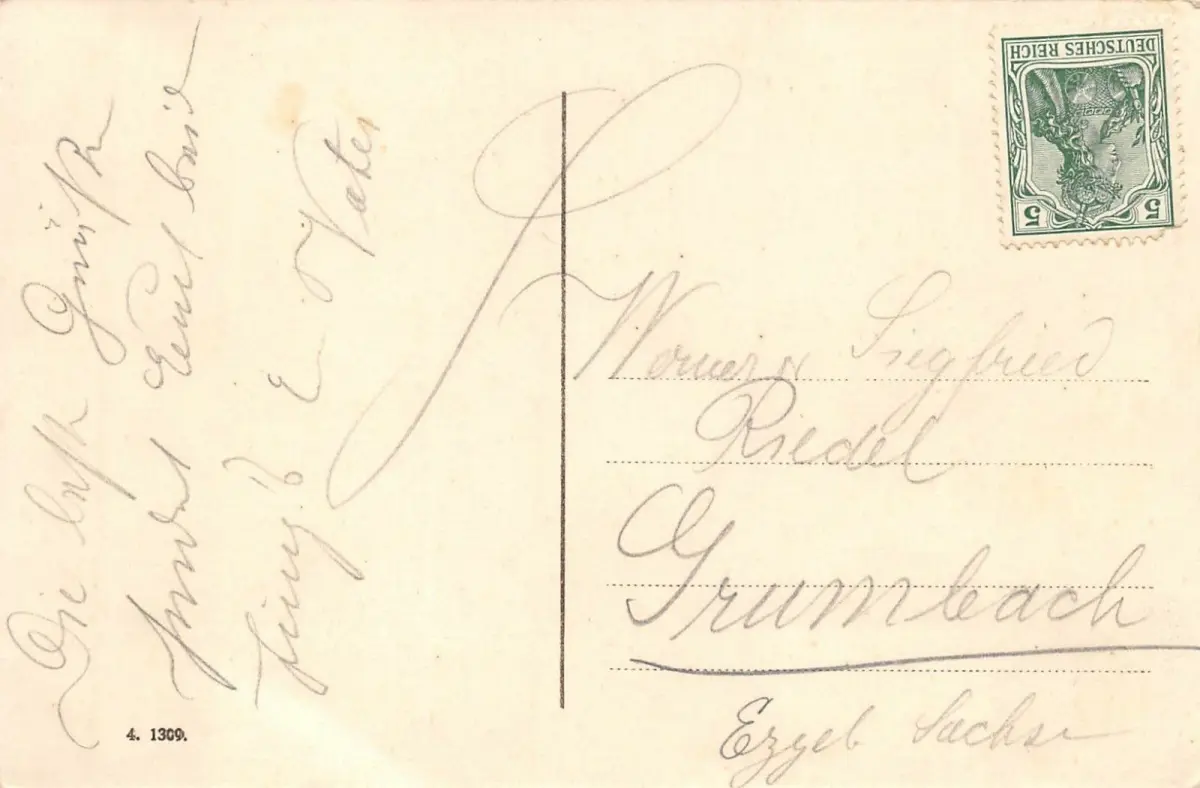 Die besten Grüße
sendet Euch beid
Euer Vater
DEUTSCHES REICH
5 5
Werner u Siegfried
Riedel
Grumbach
Erzgeb Sachsen
4. 1309.